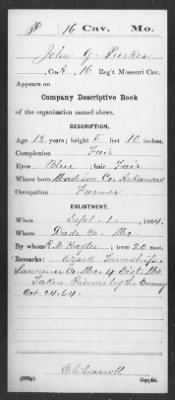 P 16 Cav. Mo.
John G. Parker
, Co. K, 16 Reg't Missouri Cav.
Appears on
Company Descriptive Book
of the organization named above.
DESCRIPTION.
Age 18 years; height 5 feet 10 inches.
Complexion Fair
Eyes Blue ; hair Fair
Where born Madison Co. Arkansas
Occupation Farmer
ENLISTMENT.
When Sept. 1 , 1864.
Where Dade Co. Mo.
By whom R. W. ; term 20 mos.
Remarks: Ozark Township
Lawrence Co. Mo. 4 Dist. Mo.
Taken Prisoner by the Enemy
Oct. 24. 64.
Copyist.